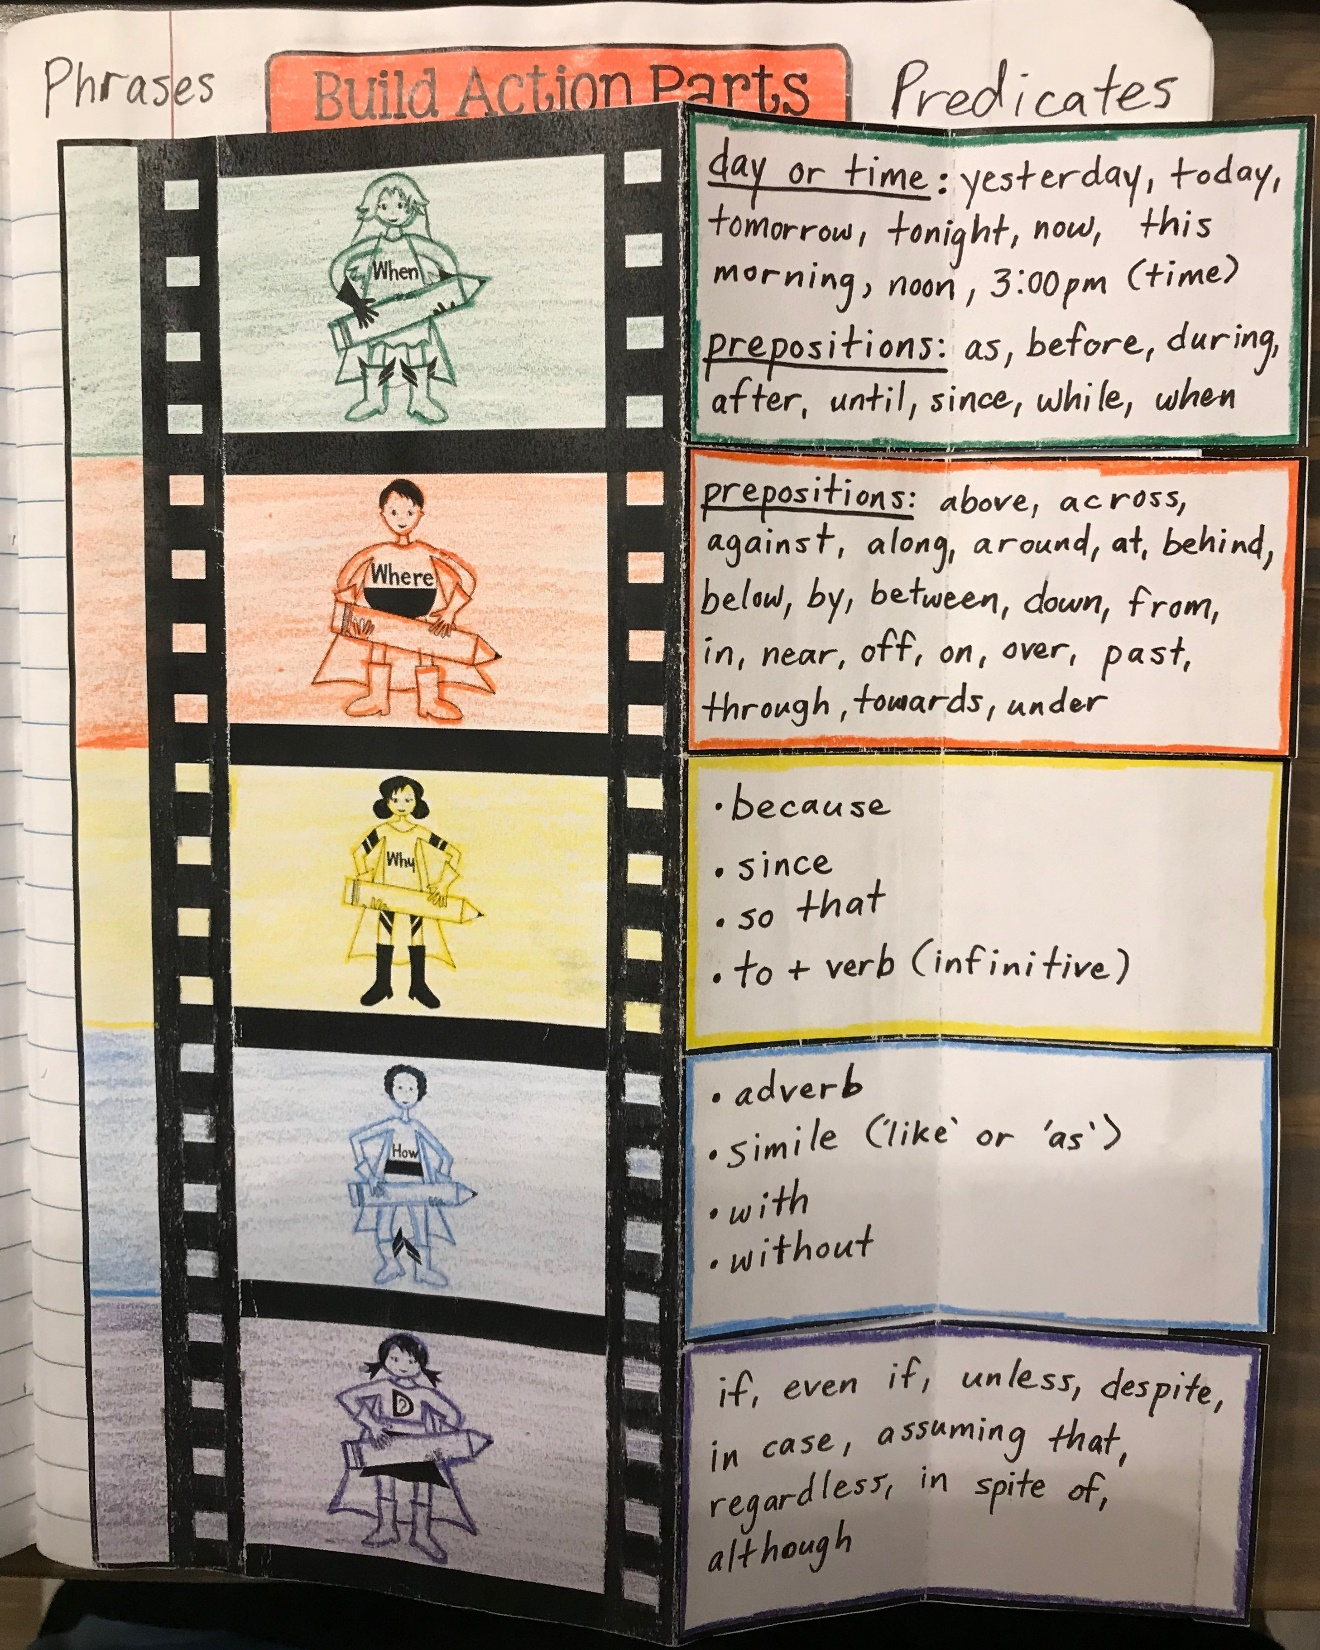 Phrases
Build Action Parts
Predicates
When
day or time: yesterday, today,
tomorrow, tonight, now, this
morning, noon, 3:00pm (time)
prepositions: as, before, during,
after, until, since, while, when
Where
prepositions: above, across,
against, along, around, at, behind,
below, by, between, down, from,
in, near, off, on, over, past,
through, towards, under
Why
• because
• since
• so that
• to + verb (infinitive)
How
• adverb
• simile ('like' or 'as')
• with
• without
D?
if, even if, unless, despite,
in case, assuming that,
regardless, in spite of,
although